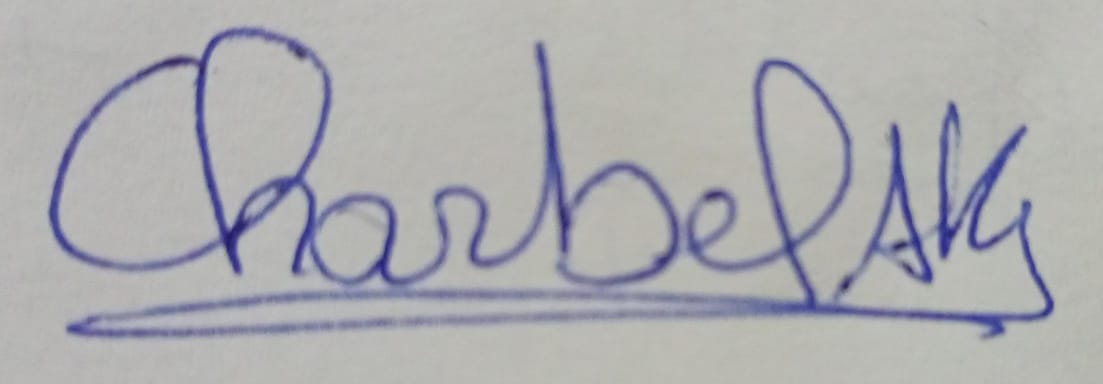 Charbel AK